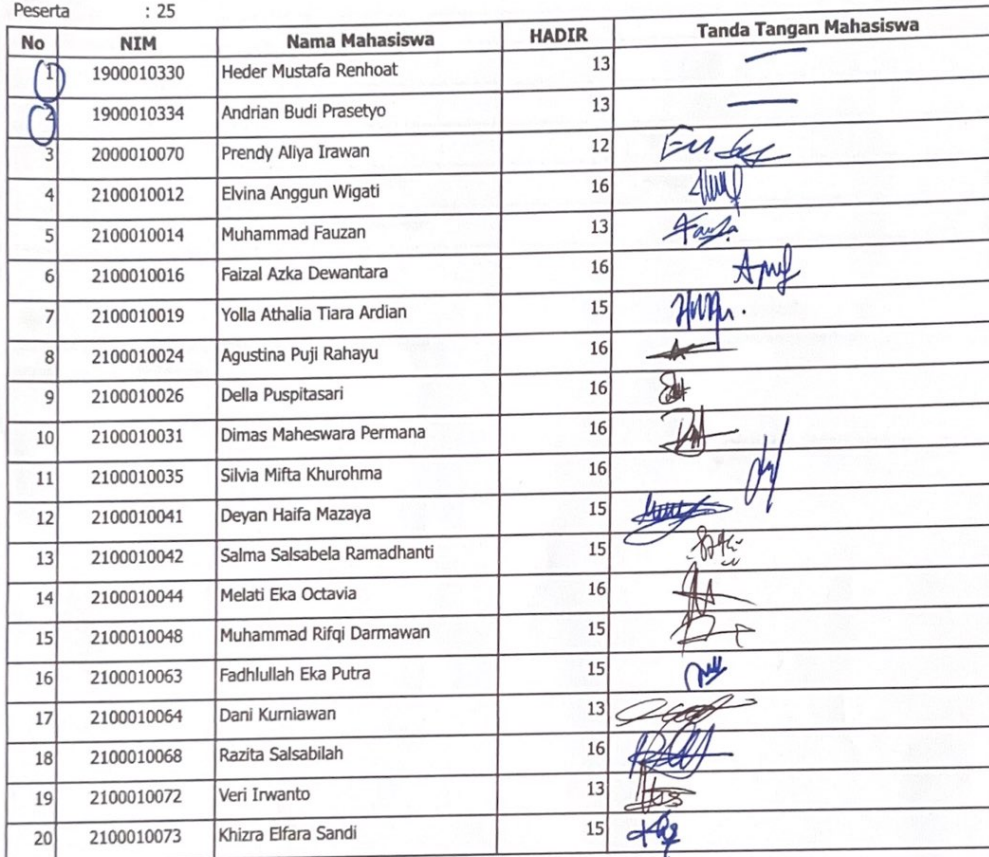 Peserta : 25
No NIM Nama Mahasiswa HADIR Tanda Tangan Mahasiswa
1 1900010330 Heder Mustafa Renhoat 13
2 1900010334 Andrian Budi Prasetyo 13
3 2000010070 Prendy Aliya Irawan 12
4 2100010012 Elvina Anggun Wigati 16
5 2100010014 Muhammad Fauzan 13
6 2100010016 Faizal Azka Dewantara 16
7 2100010019 Yolla Athalia Tiara Ardian 15
8 2100010024 Agustina Puji Rahayu 16
9 2100010026 Della Puspitasari 16
10 2100010031 Dimas Maheswara Permana 16
11 2100010035 Silvia Mifta Khurohma 16
12 2100010041 Deyan Haifa Mazaya 15
13 2100010042 Salma Salsabela Ramadhanti 15
14 2100010044 Melati Eka Octavia 16
15 2100010048 Muhammad Rifqi Darmawan 15
16 2100010063 Fadhlullah Eka Putra 15
17 2100010064 Dani Kurniawan 13
18 2100010068 Razita Salsabilah 16
19 2100010072 Veri Irwanto 13
20 2100010073 Khizra Elfara Sandi 15